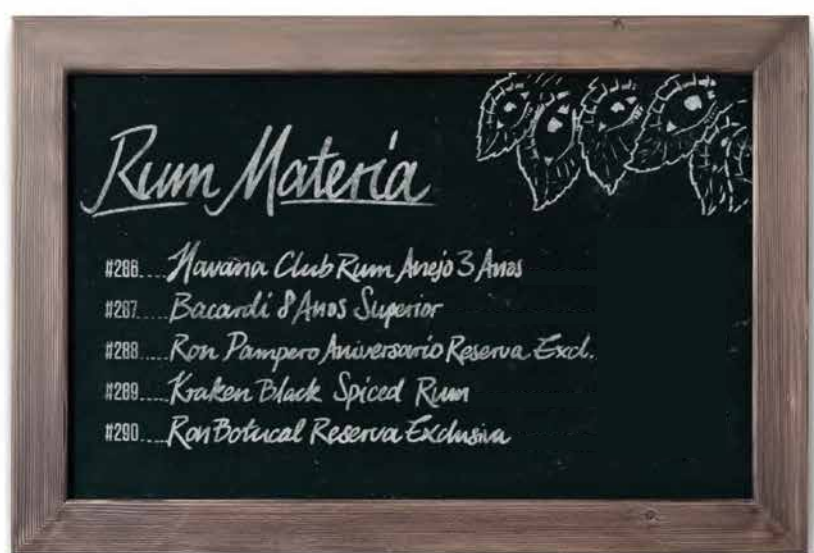 Rum Materia
#286.....Havana Club Rum Anejo 3 Anos
#287.....Bacardi 8 Anos Superior
#288.....Ron Pampero Aniversario Reserva Excl.
#289.....Kraken Black Spiced Rum
#290.....Ron Botucal Reserva Exclusiva